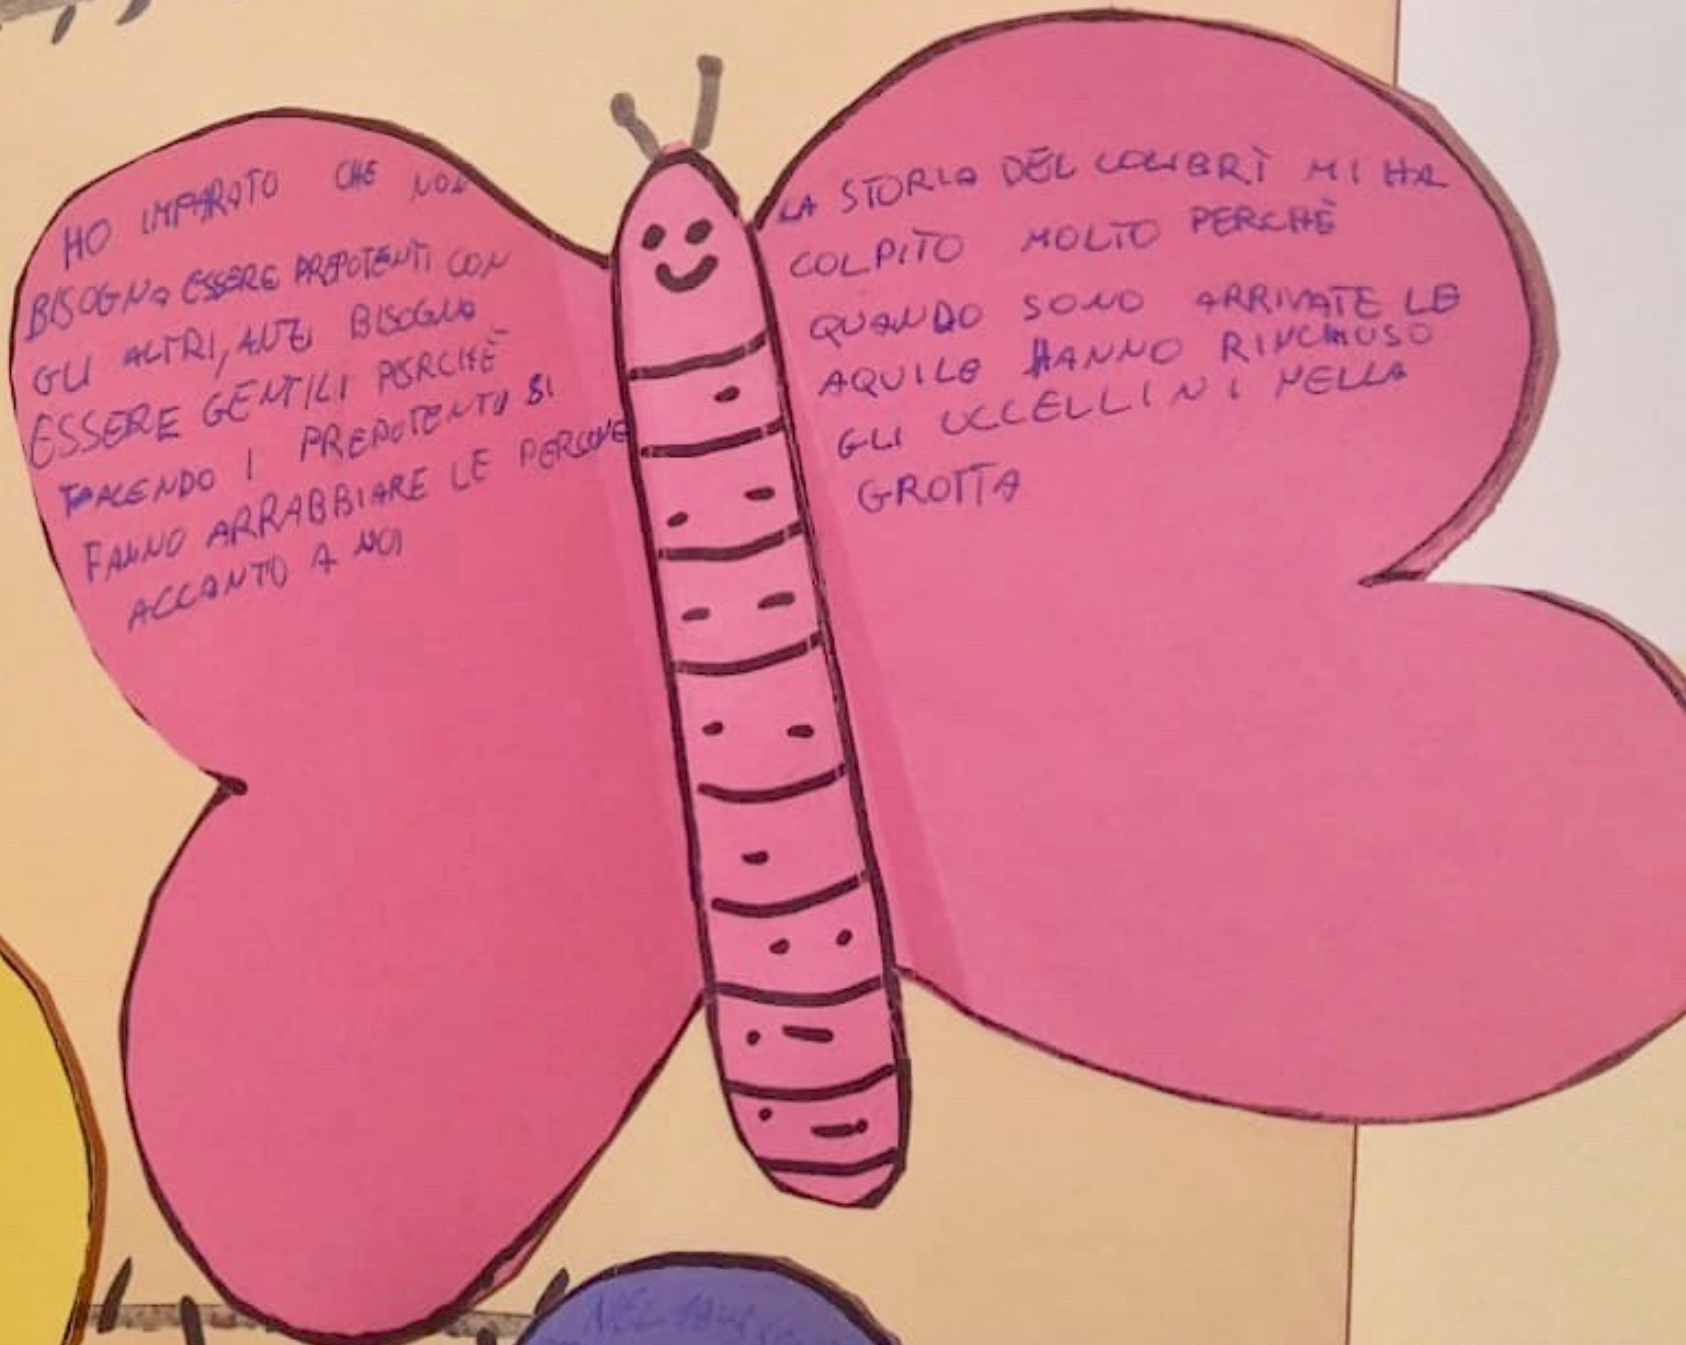 HO IMPARATO CHE NON
BISOGNA ESSERE PREPOTENTI CON
GLI ALTRI, BISOGNA
ESSERE GENTILI PERCHÈ
FACENDO I PREPOTENTI SI
FANNO ARRABBIARE LE PERSONE
ACCANTO A NOI
LA STORIA DEL COLIBRÌ MI HA
COLPITO MOLTO PERCHÈ
QUANDO SONO ARRIVATE LE
AQUILE HANNO RINCHIUSO
GLI UCCELLINI NELLA
GROTTA
NEL